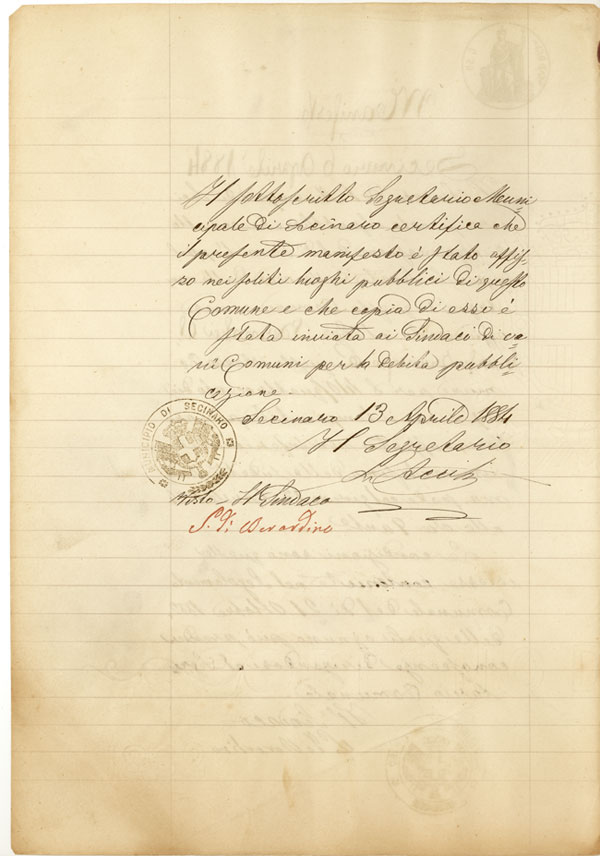 Il sottoscritto Segretario Muni-
cipale di Secinaro certifica che
il presente manifesto è stato affis-
so nei soliti luoghi pubblici di questo
Comune e che copia di essi è
stata inviata ai Sindaci di va-
rii Comuni per la debita pubbli-
cazione.
Secinaro 13 Aprile 1884
Il Segretario
MUNICIPIO DI SECINARO
Visto - Il Sindaco
S. Di Berardino